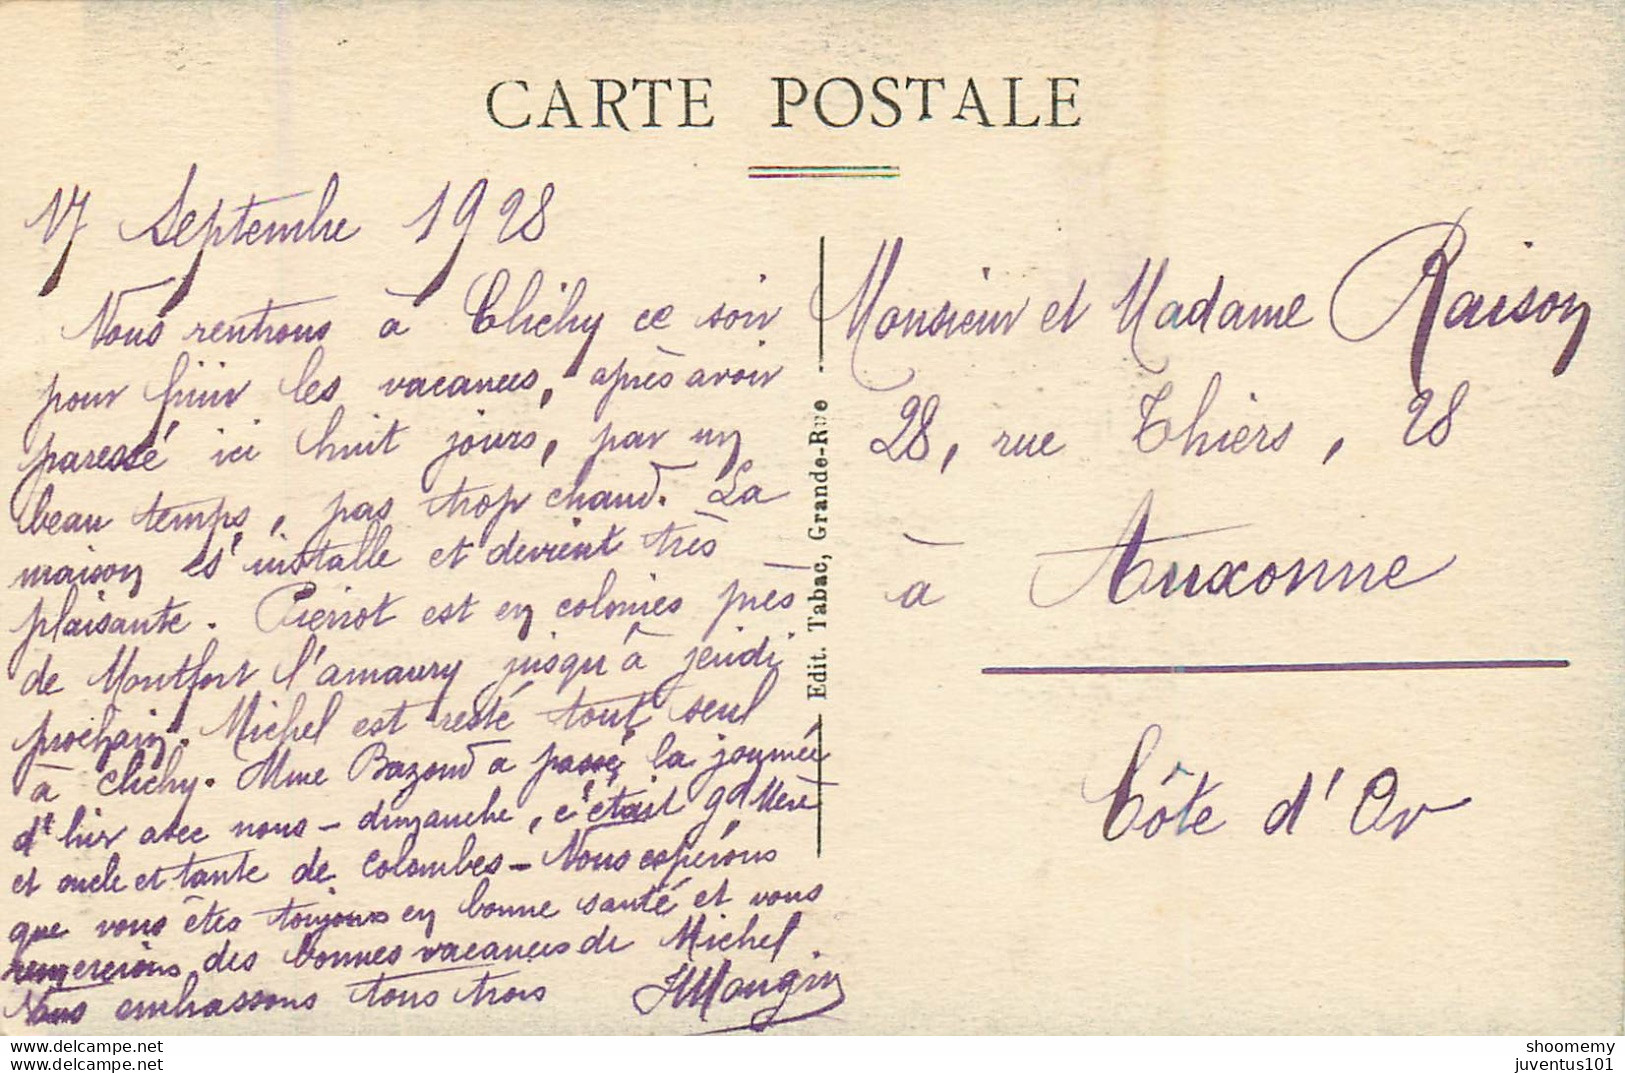 CARTE POSTALE
17 Septembre 1928
Nous rentrons à Clichy ce soir
pour finir les vacances, après avoir
paressé ici huit jours, par un
beau temps, pas trop chaud. La
maison s'installe et devient très
plaisante. Pierrot est en colonies près
de Montfort l'amaury jusqu'à jeudi
prochain. Michel est resté tout seul
à Clichy. Mme Bazoud a passé la journée
d'hier avec nous - dimanche, c'était gd Mère
et oncle et tante de Colombes - Nous espérons
que vous êtes toujours en bonne santé et vous
remercions des bonnes vacances de Michel.
Nous embrassons tous trois
HMougin
Edit. Tabac, Grande-Rue
Monsieur et Madame Raison
28, rue Thiers, 28
à Auxonne
Côte d'Or
www.delcampe.net
www.delcampe.com
shoomemy
juventus101